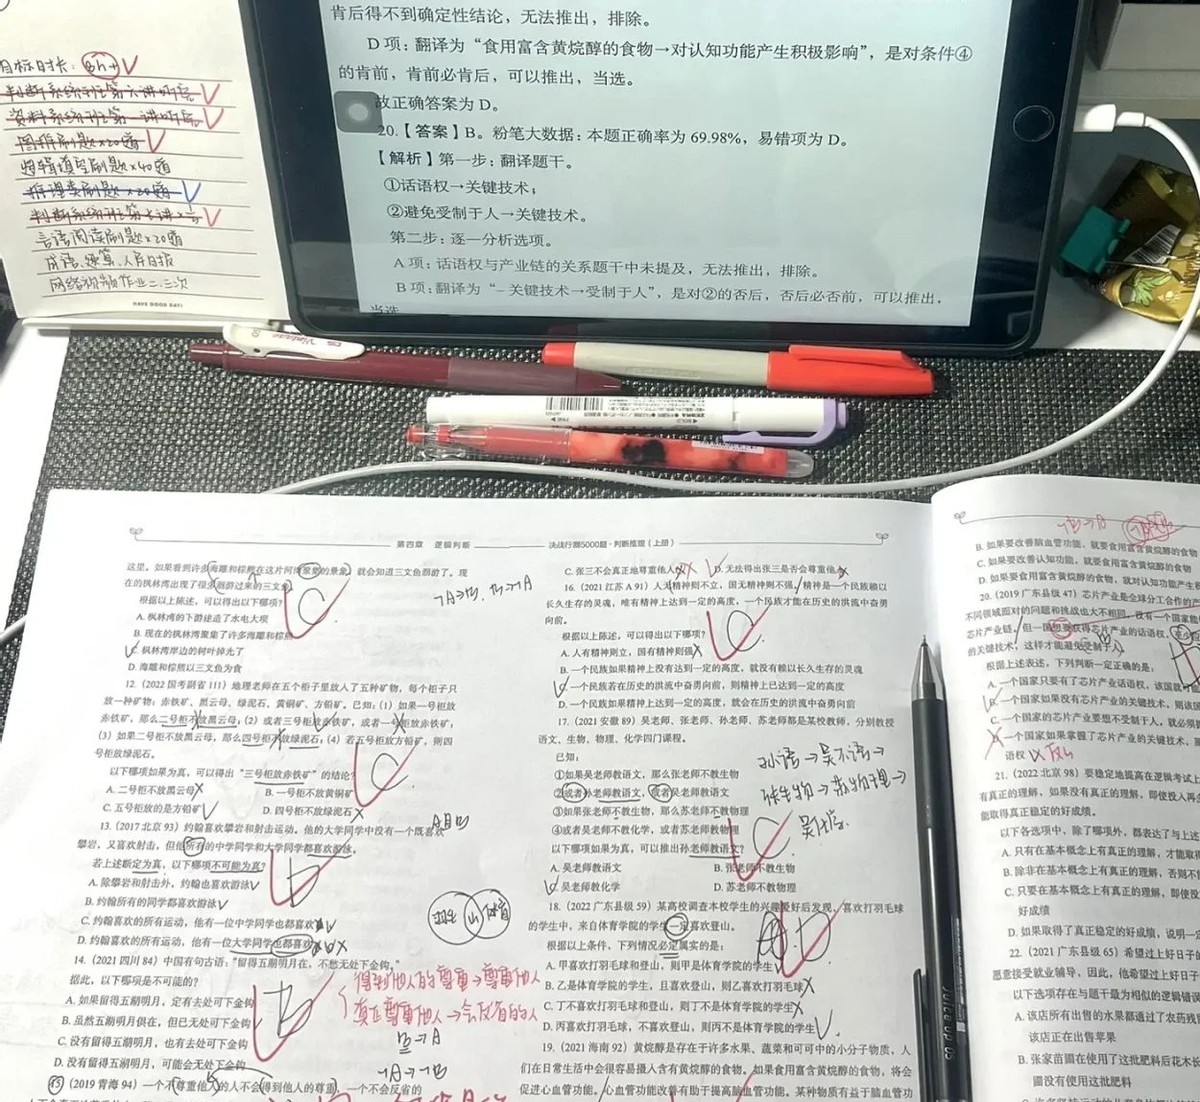 目标时长：8h+
判断系统班第六讲听完
资料系统班第一讲听完
图推刷题×20道
逻辑填空刷题×40道
推理类刷题×20道
言语阅读刷题×20道
成语、速算、人民日报
网络视频作业二、三次
HAVE GOOD DAY!
肯后得不到确定性结论，无法推出，排除。
D 项：翻译为“食用富含黄烷醇的食物→对认知功能产生积极影响”，是对条件④
的肯前，肯前必肯后，可以推出，当选。
故正确答案为 D。
20.【答案】B。粉笔大数据：本题正确率为 69.98%，易错项为 D。
【解析】第一步：翻译题干。
①话语权→关键技术；
②避免受制于人→关键技术。
第二步：逐一分析选项。
A 项：话语权与产业链的关系题干中未提及，无法推出，排除。
B 项：翻译为“–关键技术→受制于人”，是对②的否后，否后必否前，可以推出，
当选
第四章 逻辑判断
这里。如果看到许多海雕和棕熊在这片河湾聚集的景象，就会知道三文鱼洄游了。现
在的枫林湾出现了很多洄游过来的三文鱼
根据以上陈述，可以得出以下哪项？
A. 枫林湾的下游建造了水电大坝
B. 现在的枫林湾聚集了许多海雕和棕熊
C. 枫林湾岸边的树叶掉光了
D. 海雕和棕熊以三文鱼为食
12.（2022 国考副省 111）地理老师在五个柜子里放入了五种矿物，每个柜子只
放一种矿物：赤铁矿、黑云母、绿泥石、黄铜矿、方铅矿。已知：（1）如果一号柜放
赤铁矿，那么二号柜不放黑云母；（2）或者三号柜放赤铁矿，或者一号柜放赤铁矿，
（3）如果二号柜不放黑云母，那么四号柜不放绿泥石；（4）若五号柜放方铅矿，则四
号柜放绿泥石。
以下哪项如果为真，可以得出“三号柜放赤铁矿”的结论？
A. 二号柜不放黑云母 B. 一号柜不放黄铜矿
C. 五号柜放的是方铅矿 D. 四号柜不放绿泥石
13.（2017 北京 93）约翰喜欢攀岩和射击运动，他的大学同学中没有一个既喜欢
攀岩，又喜欢射击，但他所有的中学同学和大学同学都喜欢游泳。
若上述断定为真，以下哪项不可能为真？
A. 除攀岩和射击外，约翰也喜欢游泳
B. 约翰所有的同学都喜欢游泳
C. 约翰喜欢的所有运动，他有一位中学同学也都喜欢
D. 约翰喜欢的所有运动，他有一位大学同学也都喜欢
14.（2021 四川 84）中国有句古语：“留得五湖明月在，不愁无处下金钩。”
据此，以下哪项是不可能的？
A. 如果留得五湖明月，定有去处可下金钩
B. 虽然五湖明月俱在，但已无处可下金钩
C. 没有留得五湖明月，也有去处可下金钩
D. 没有留得五湖明月，可能会无处下金钩
15（2019 青海 94）一个不尊重他人的人不会得到他人的尊重，一个不会反省的
¬A→B，¬B→A
得到他人的尊重→尊重他人
真正尊重他人→会反省的人
B→A
¬A→¬B
决战行测5000题·判断推理（上册）
C. 张三不会真正地尊重他人 D. 无法得出张三是否会尊重他人
16.（2021 江苏 A 91）人无精神则不立，国无精神则不强。精神是一个民族赖以
长久生存的灵魂，唯有精神上达到一定的高度，一个民族才能在历史的洪流中奋勇
向前。
根据以上陈述，可以得出以下哪项？
A. 人有精神则立，国有精神则强
B. 一个民族如果精神上没有达到一定的高度，就没有赖以长久生存的灵魂
C. 一个民族若在历史的洪流中奋勇向前，则精神上已达到一定的高度
D. 一个民族如果精神上达到一定的高度，就会在历史的洪流中奋勇向前
17.（2021 安徽 89）吴老师、张老师、孙老师、苏老师都是某校教师，分别教授
语文、生物、物理、化学四门课程。
已知：
①如果吴老师教语文，那么张老师不教生物
②或者孙老师教语文，或者吴老师教语文
③如果张老师不教生物，那么苏老师不教物理
④或者吴老师不教化学，或者苏老师教物理
以下哪项如果为真，可以推出孙老师教语文？
A. 吴老师教语文 B. 张老师不教生物
C. 吴老师教化学 D. 苏老师不教物理
18.（2022 广东县级 59）某高校调查本校学生的兴趣爱好后发现，喜欢打羽毛球
的学生中，来自体育学院的学生一定喜欢登山。
根据以上条件，下列情况必定属实的是：
A. 甲喜欢打羽毛球和登山，则甲是体育学院的学生
B. 乙是体育学院的学生，且喜欢登山，则乙喜欢打羽毛球
C. 丁不喜欢打羽毛球和登山，则丁不是体育学院的学生
D. 丙喜欢打羽毛球，不喜欢登山，则丙不是体育学院的学生
19.（2021 海南 92）黄烷醇是存在于许多水果、蔬菜和可可中的小分子物质，人
们在日常生活中会很容易摄入含有黄烷醇的食物。如果食用富含黄烷醇的食物，将会
促进心血管功能，心血管功能改善有助于提高脑血管功能。某种物质有益于脑血管功
B. 如果要改善脑血管功能，就要食用富含黄烷醇的食物
C. 如果要改善认知功能，就要食用富含黄烷醇的食物
D. 如果要食用富含黄烷醇的食物，就对认知功能产生积
20.（2019 广东县级 47）芯片产业是全球分工合作的产
不同领域面对的问题和挑战也大不相同，没有一个国家能
芯片产业链。但一国想要获得芯片产业的话语权，至少
的关键技术，这样才能避免受制于人。
根据上述表述，下列判断一定正确的是：
A. 一个国家只要有了芯片产业话语权，该国就
B. 一个国家如果没有芯片产业的关键技术，则该国
C. 一个国家的芯片产业要想不受制于人，就必须
D. 一个国家如果掌握了芯片产业的关键技术，
语权
21.（2022 北京 98）要稳定地提高在逻辑考试上
有真正的理解，如果没有真正的理解，即使投入再
能取得真正稳定的好成绩。
以下各选项中，除了哪项外，都表达了与上述
A. 只有在基本概念上有真正的理解，才能取得
B. 除非在基本概念上有真正的理解，否则不
C. 只要在基本概念上有真正的理解，即使投
好成绩
D. 如果取得了真正稳定的好成绩，说明一定
22.（2021 广东县级 65）希望过上好日子的
愿意接受就业辅导，因此，他希望过上好日子
以下选项存在与题干最为相似的逻辑错误
A. 该店所有出售的水果都通过了农药残留
该店正在出售苹果
B. 张家苗圃在使用了这批肥料后花木长
圃没有使用这批肥料